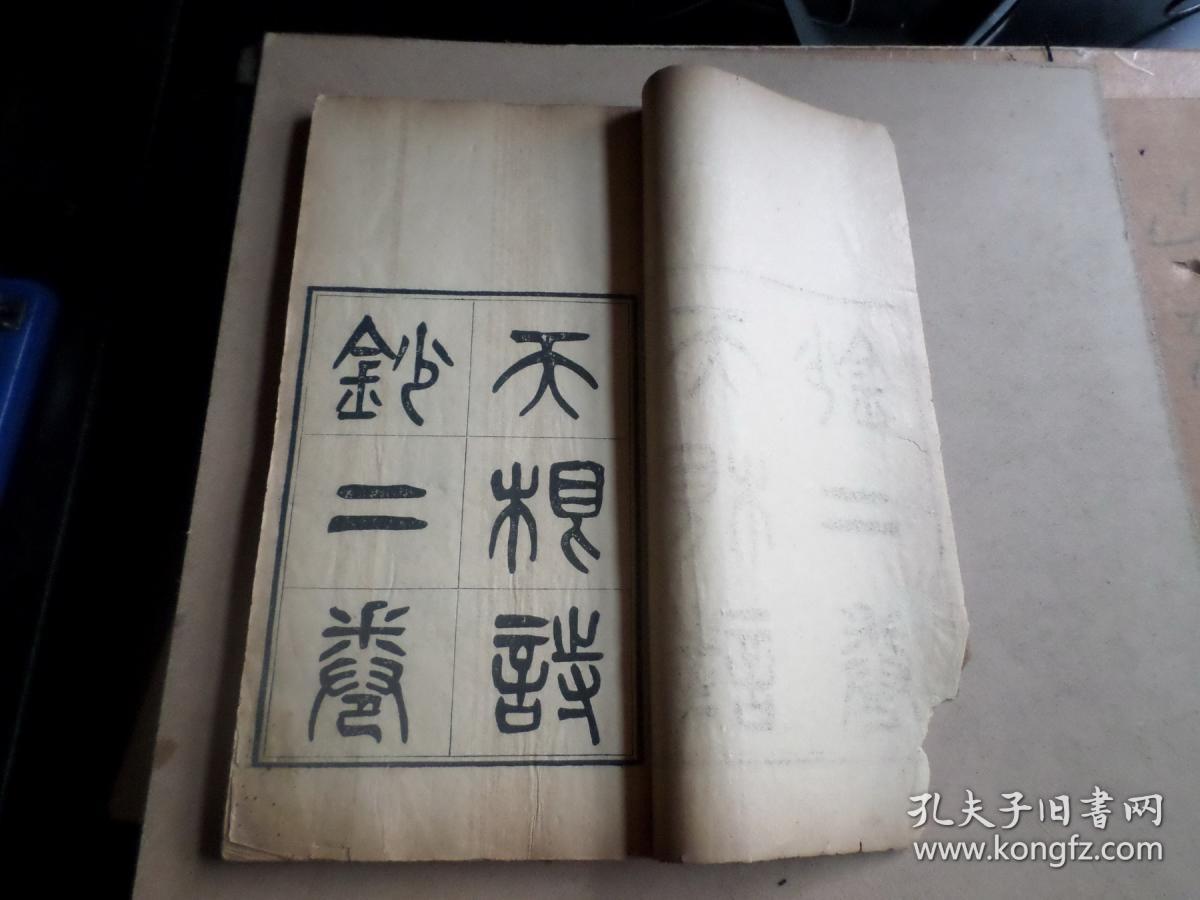 天根詩
鈔二卷
孔夫子旧书网
www.kongfz.com